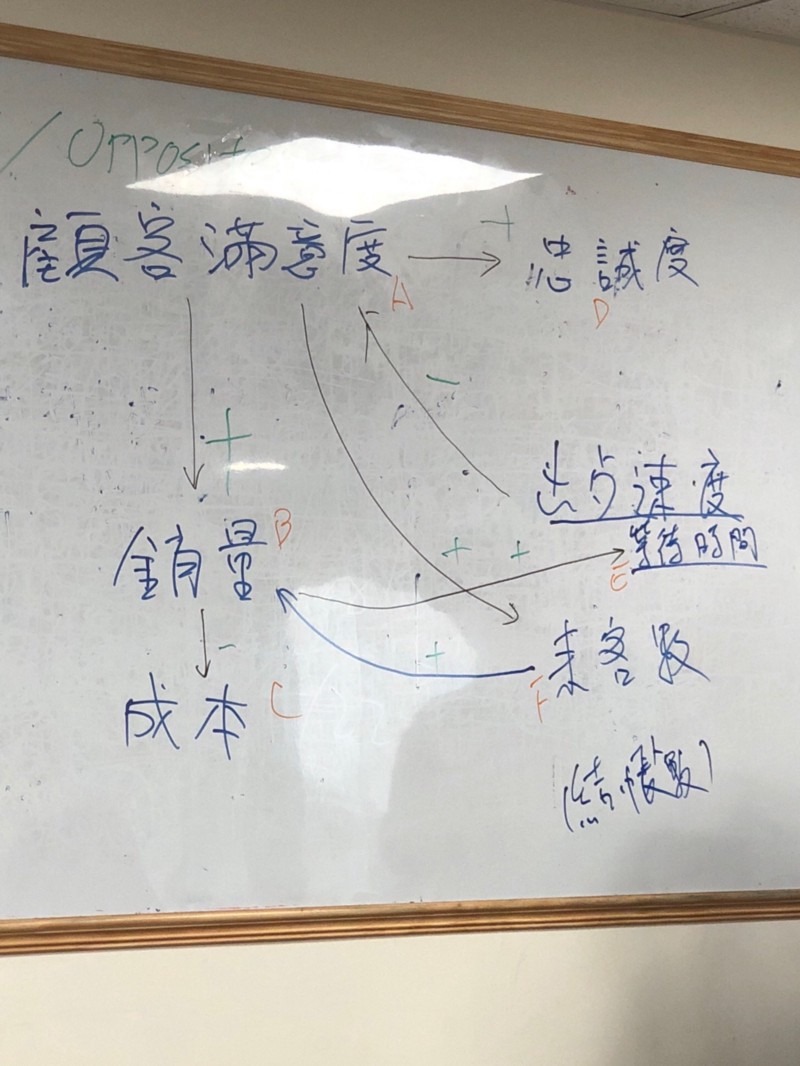 / Opposit
顧客滿意度 A
+
忠誠度
D
-
+
出餐速度
等待時間
E
+ +
銷量 B
-
+
來客數
F
成本 C
(結帳數)